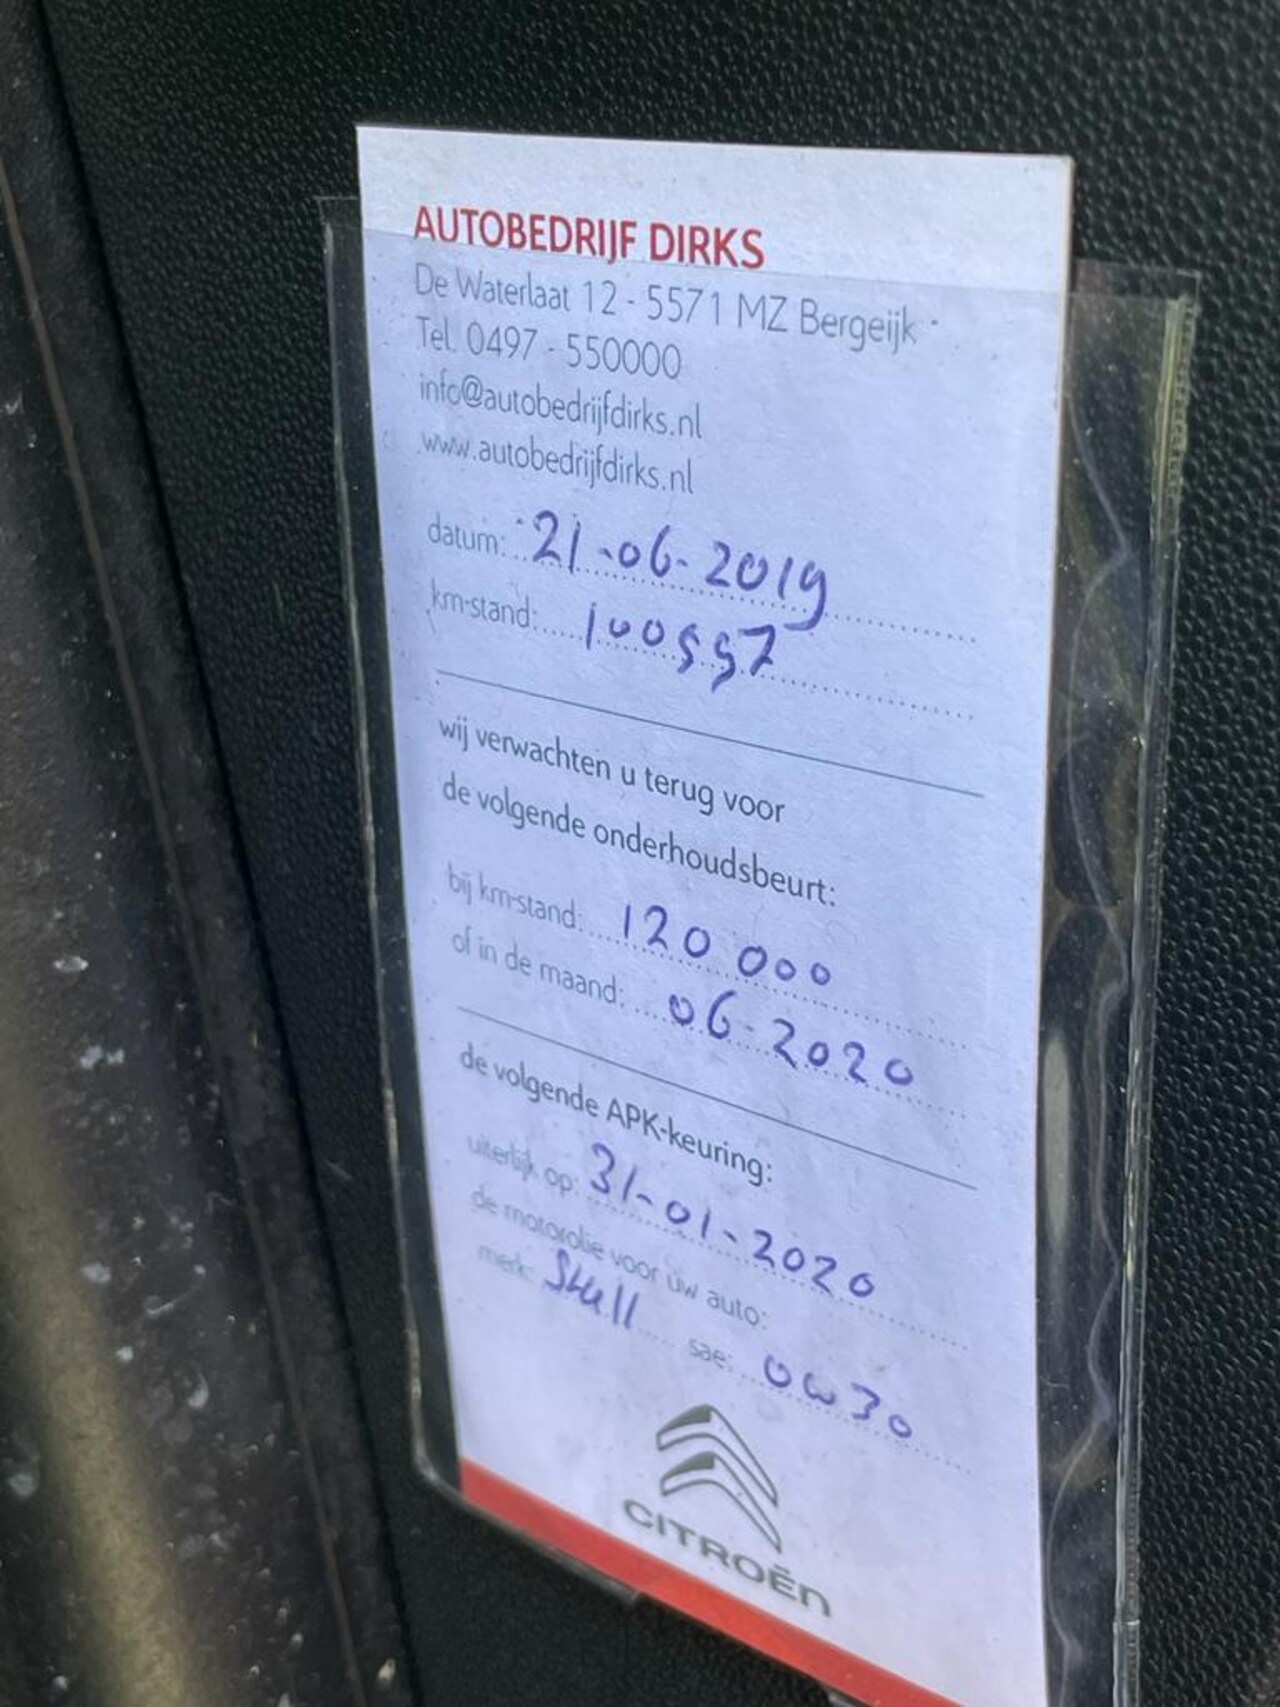 AUTOBEDRIJF DIRKS
De Waterlaat 12 - 5571 MZ Bergeijk
Tel. 0497 - 550000
info@autobedrijfdirks.nl
www.autobedrijfdirks.nl
datum: 21-06-2019
km-stand: 100557
wij verwachten u terug voor
de volgende onderhoudsbeurt:
bij km-stand: 120 000
of in de maand: 06-2020
de volgende APK-keuring:
uiterlijk op: 31-01-2020
de motorolie voor uw auto:
merk: Shell sae: 0w30
CITROËN